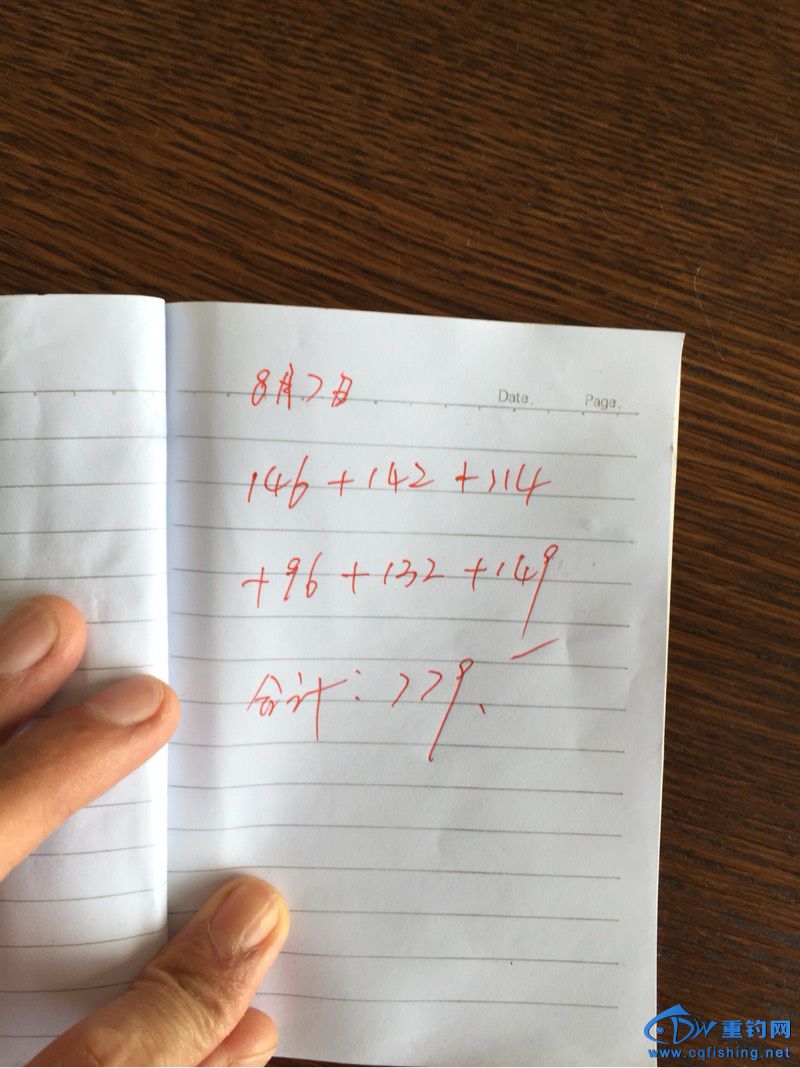 8月7日
Date.
Page.
146+142+114
+96+132+149
合计：779、
重钓网
www.cqfishing.net